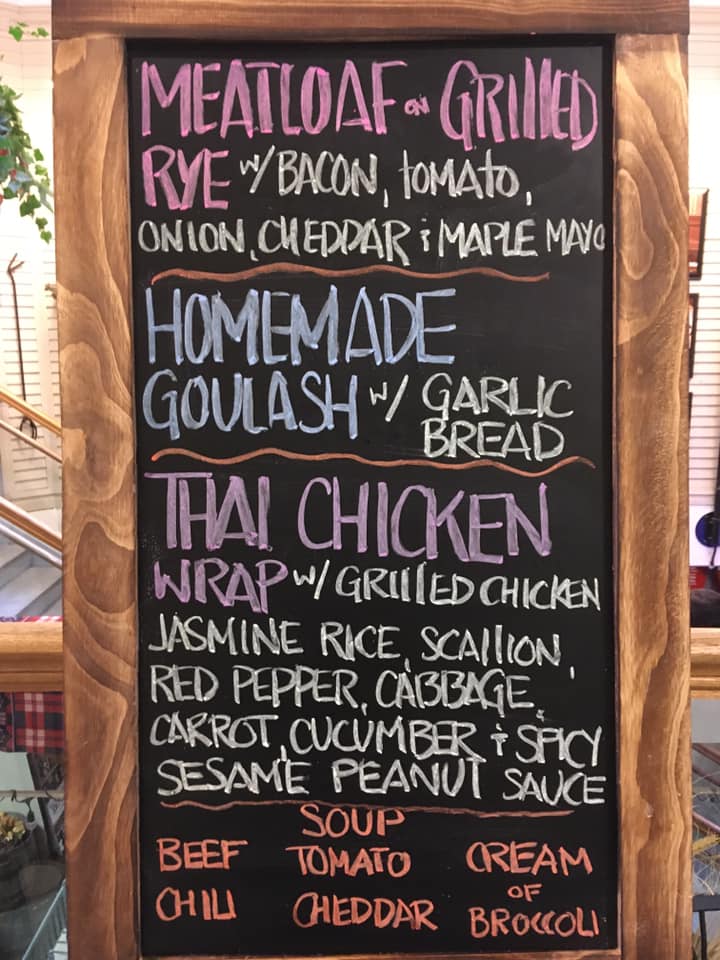 MEATLOAF ON GRILLED
RYE W/ BACON, TOMATO,
ONION, CHEDDAR & MAPLE MAYO
HOMEMADE
GOULASH W/ GARLIC
BREAD
THAI CHICKEN
WRAP W/ GRILLED CHICKEN
JASMINE RICE, SCALLION,
RED PEPPER, CABBAGE,
CARROT, CUCUMBER & SPICY
SESAME PEANUT SAUCE
SOUP
BEEF TOMATO CREAM
OF
CHILI CHEDDAR BROCCOLI